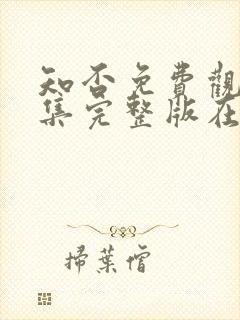 知否免費觀
集完整版在
掃葉僧